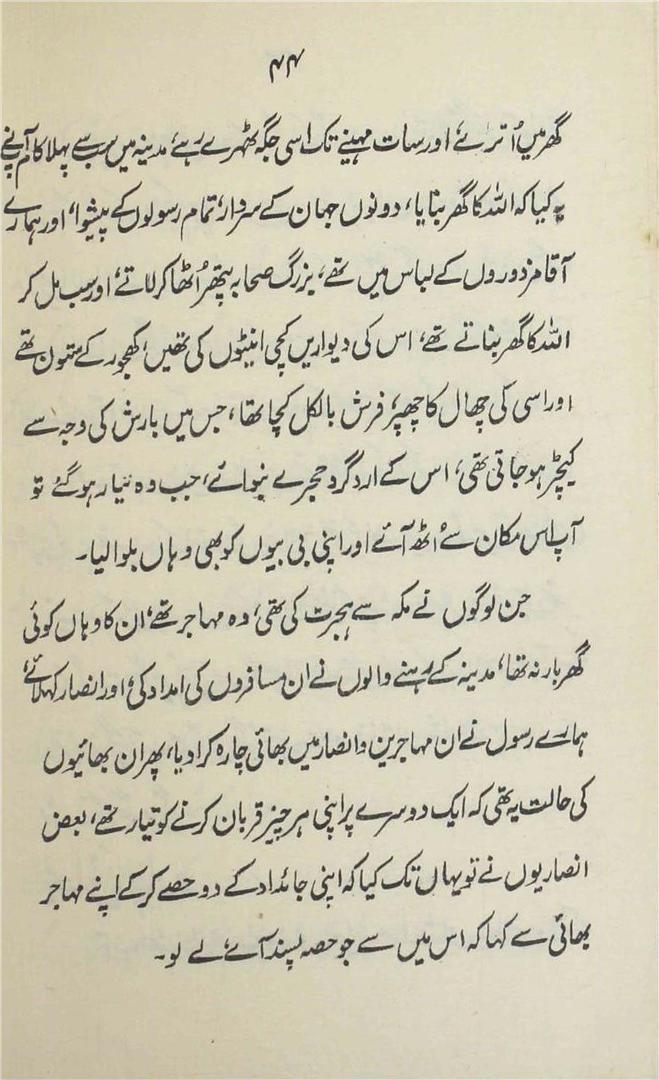 ۴۴
گھر میں اُترے، اور سات مہینے تک اسی جگہ ٹھہرے رہے، مدینہ میں سب سے پہلا کام آپ نے
یہ کیا کہ اللہ کا گھر بنایا، دونوں جہان کے سردار، تمام رسولوں کے پیشوا، اور ہمارے
آقا مزدوروں کے لباس میں تھے، بزرگ صحابہ پتھر اُٹھا کر لاتے، اور سب مل کر
اللہ کا گھر بناتے تھے، اس کی دیواریں کچی اینٹوں کی تھیں، کھجور کے ستون تھے
اور اسی کی چھال کا چھپر، فرش بالکل کچا تھا، جس میں بارش کی وجہ سے
کیچڑ ہو جاتی تھی، اس کے ارد گرد حجرے بنوائے، جب وہ تیار ہو گئے تو
آپ اس مکان سے اُٹھ آئے اور اپنی بی بیوں کو بھی وہاں بلوا لیا۔
جن لوگوں نے مکہ سے ہجرت کی تھی، وہ مہاجر تھے، ان کا وہاں کوئی
گھر بار نہ تھا، مدینہ کے رہنے والوں نے ان مسافروں کی امداد کی، اور انصار کہلائے،
ہمارے رسول نے ان مہاجرین و انصار میں بھائی چارہ کرا دیا، پھر ان بھائیوں
کی حالت یہ تھی کہ ایک دوسرے پر اپنی ہر چیز قربان کرنے کو تیار تھے، بعض
انصاریوں نے تو یہاں تک کیا کہ اپنی جائداد کے دو حصے کر کے اپنے مہاجر
بھائی سے کہا کہ اس میں سے جو حصہ پسند آئے، لے لو۔